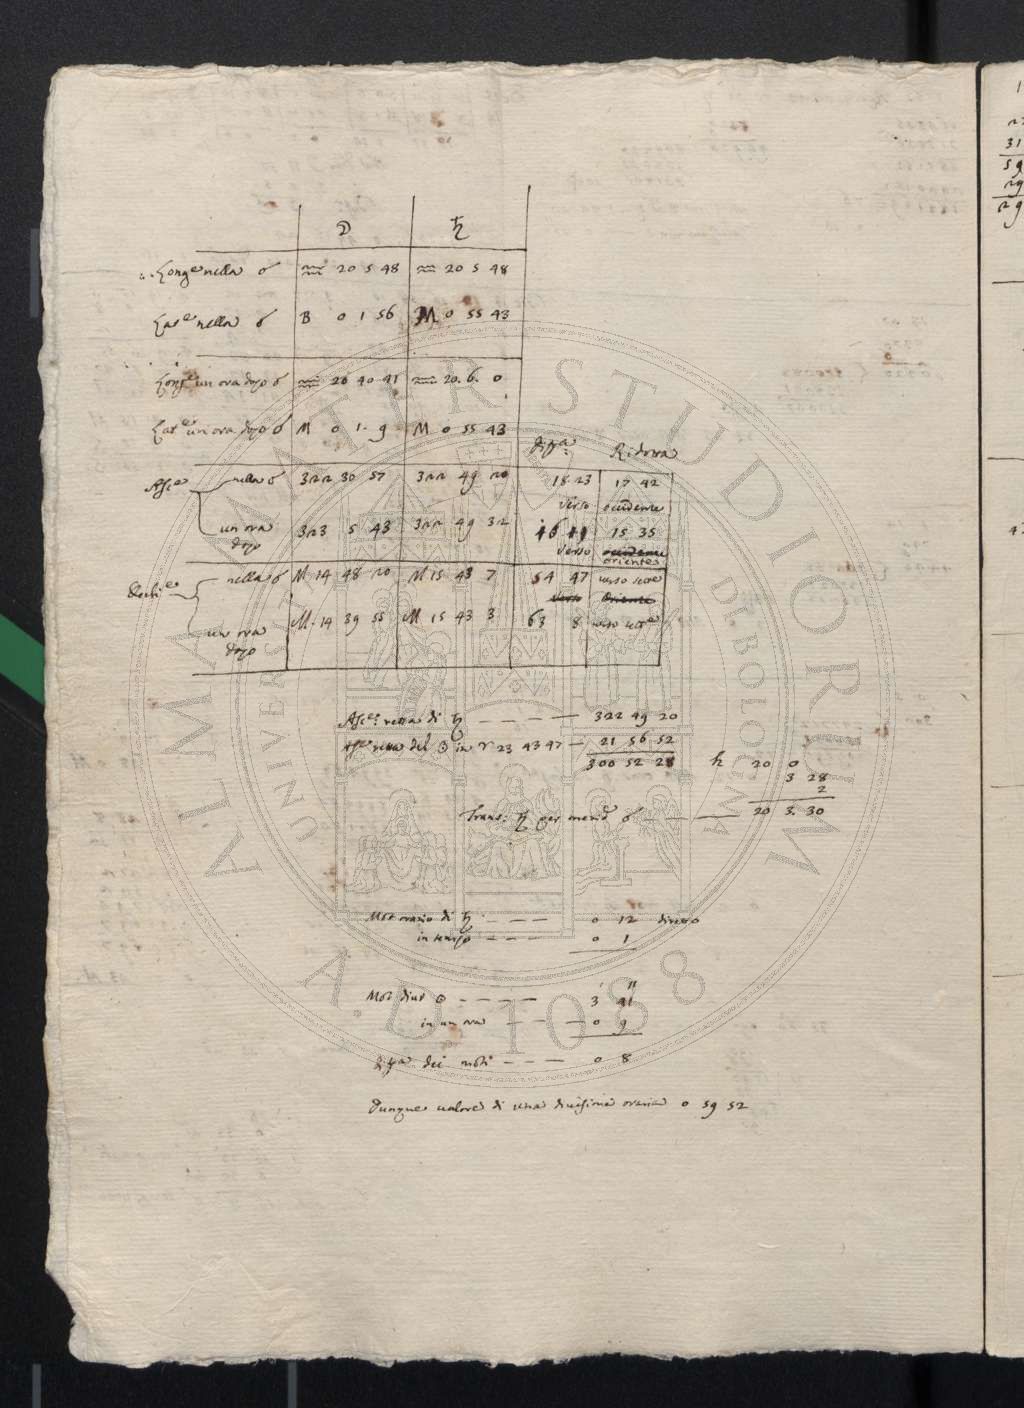 ☽ ♄
Long.e nella ☌ ♒ 20 5 48 ♒ 20 5 48
Lat.e nella ☌ B 0 1 56 M 0 55 43
Long.e un ora dopo ☌ ♒ 20 40 41 ♒ 20. 6. 0
Lat.e un ora dopo ☌ M 0 1. 9 M 0 55 43
diff.a Ridotta
Asc.e nella ☌ 322 30 57 322 49 20 18 23 17 42
verso occidente
un ora dopo 323 5 43 322 49 32 16 11 15 35
verso occidente
oriente
Decli.e nella ☌ M 14 48 20 M 15 43 7 54 47 verso sett.e
verso Oriente
un ora dopo M. 14 39 55 M 15 43 3 63 8 verso sett.e
Asc.e retta di ♄ — — — — 322 49 20
Asc.e retta del ☉ in ♈ 23 43 47 — 21 56 52
300 52 28 h 20 0
3 28
2
Trans. ♄ per merid ☌ — — — 20 3. 30
Mot orario di ♄ — — — 0 12 diretto
in tempo — — — 0 1
Mot diur ☉ — — — — 3' 41"
in un ora — — — 0 9
diff.a dei moti — — — 0 8
Dunque valore di una divisione oraria 0 59 52
ALMA MATER STUDIORUM
UNIVERSITÀ DI BOLOGNA
A.D. 1088